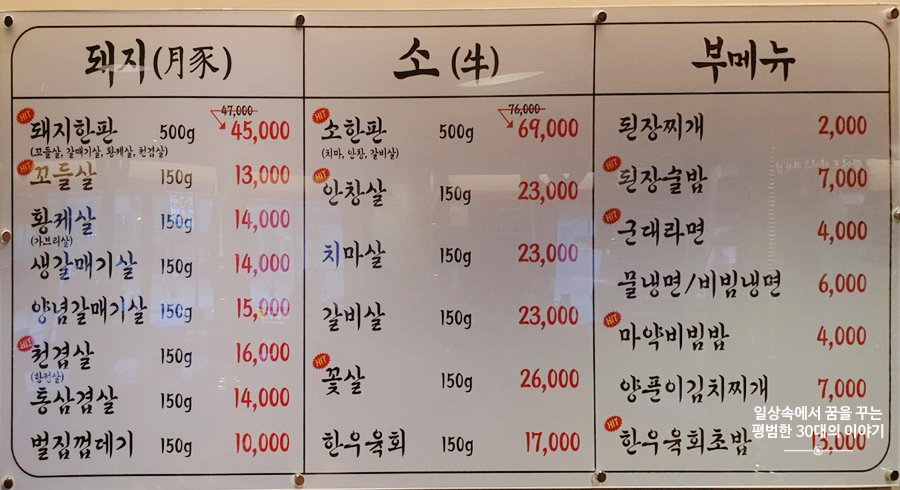 돼지(月豕)
HIT
돼지한판 500g 47,000 45,000
(꼬들살, 갈매기살, 황제살, 천겹살)
HIT
꼬들살 150g 13,000
황제살 150g 14,000
(가브리살)
생갈매기살 150g 14,000
양념갈매기살 150g 15,000
HIT
천겹살 150g 16,000
(항정살)
통삼겹살 150g 14,000
벌집껍데기 150g 10,000
소(牛)
HIT
소한판 500g 76,000 69,000
(치마, 안창, 갈비살)
안창살 150g 23,000
치마살 150g 23,000
갈비살 150g 23,000
HIT
꽃살 150g 26,000
한우육회 150g 17,000
부메뉴
된장찌개 2,000
HIT
된장술밥 7,000
HIT
군대라면 4,000
물냉면/비빔냉면 6,000
HIT
마약비빔밥 4,000
양푼이김치찌개 7,000
HIT
한우육회초밥 15,000
일상속에서 꿈을 꾸는
평범한 30대의 이야기